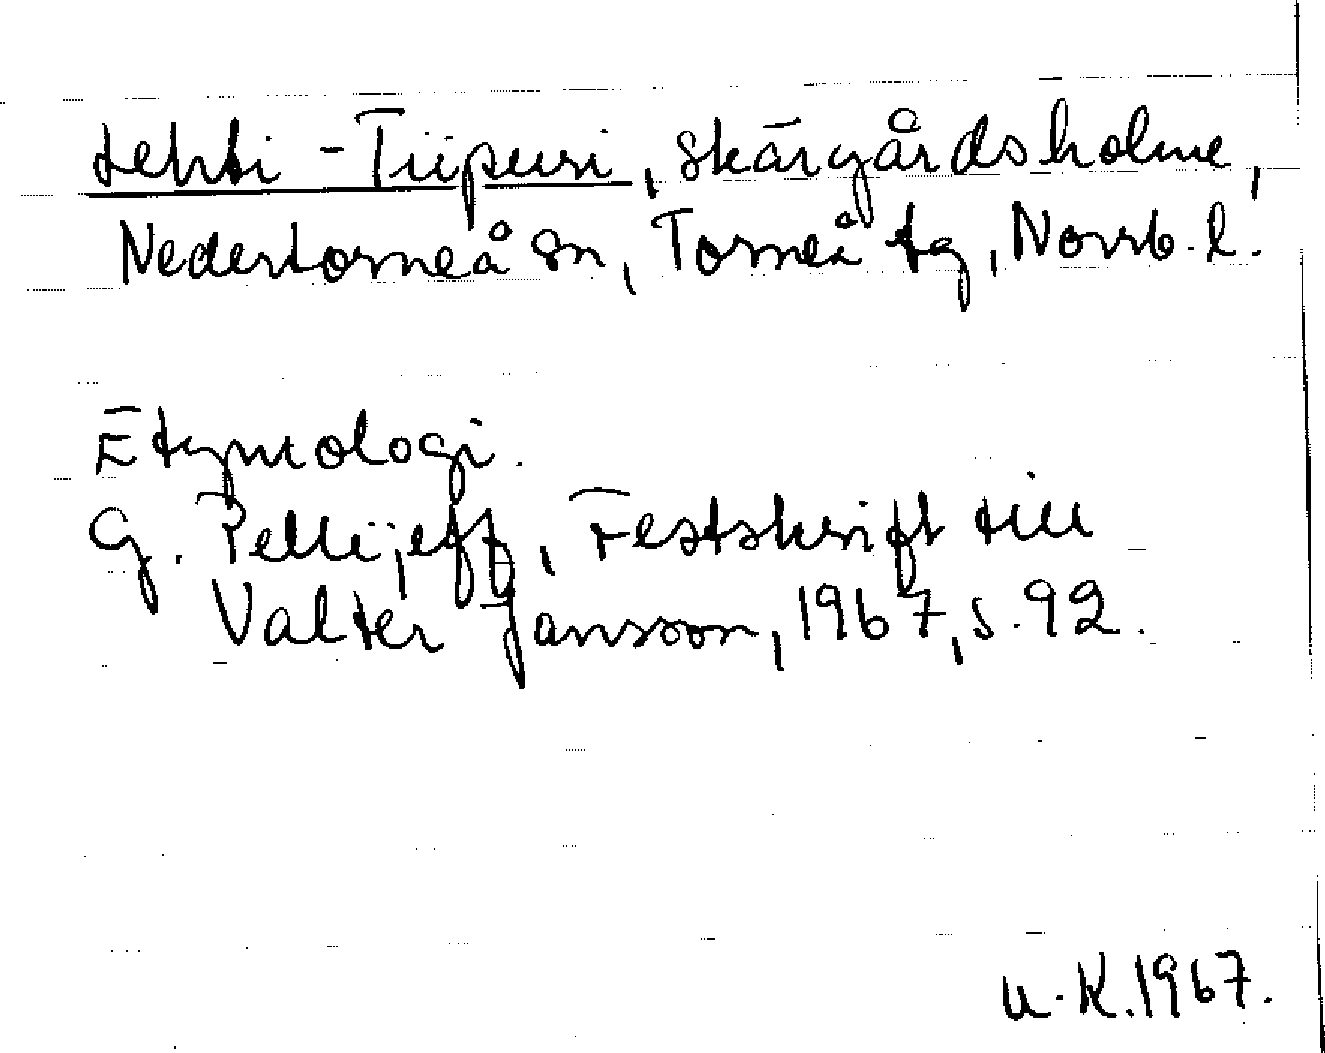 Lehti-Tiipuri, skärgårdsholme,
Nedertorneå sn, Torneå tg, Norrb. l.
Etymologi.
G. Pellijeff, Festskrift till
Valter Jansson, 1967, s. 92.
U.K. 1967.